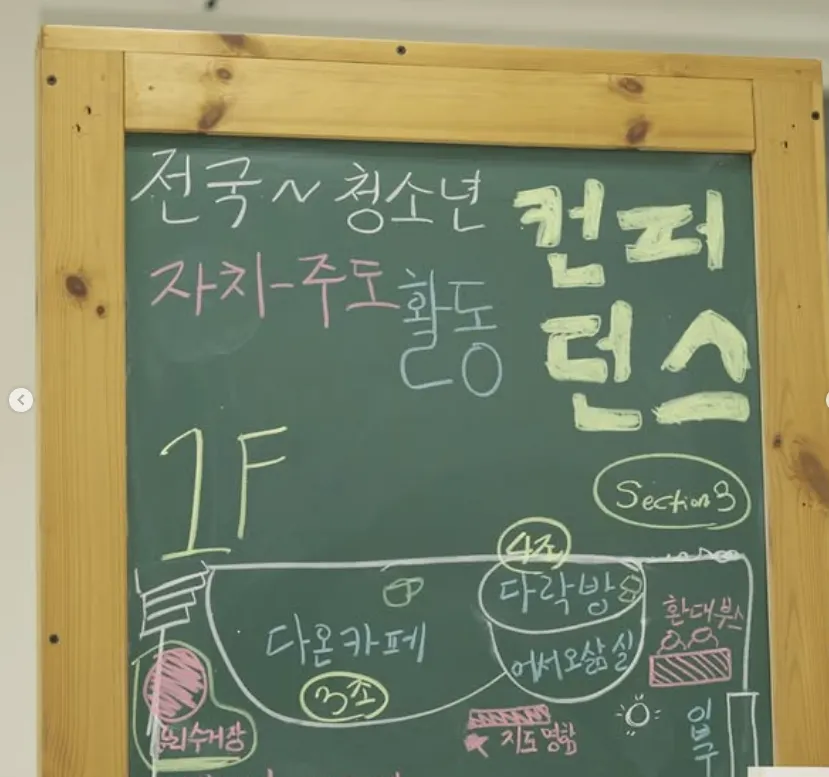 전국~청소년
자치-주도 활동
컨퍼
던스
1F
Section 3
4조
다락방
다온카페
어서오삶실
환대부스
3조
지도 명함
입구